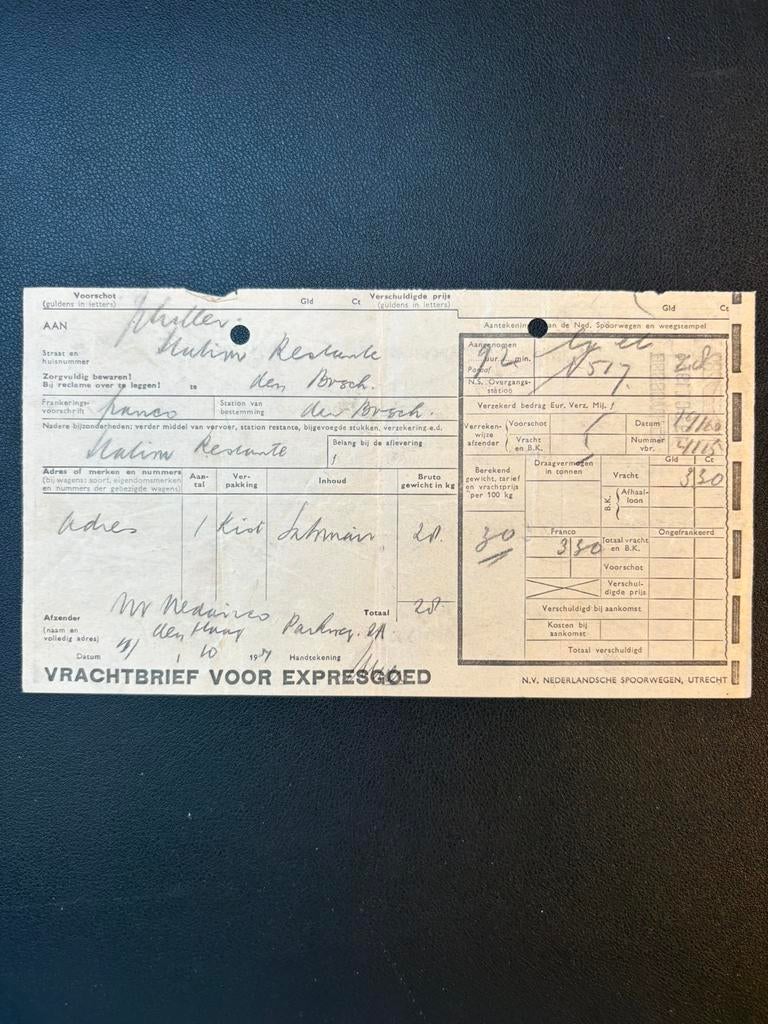 Voorschot
(guldens in letters) Gld Ct
Verschuldigde prijs
(guldens in letters) Gld Ct
AAN
Straat en
huisnummer
Station Restante
Zorgvuldig bewaren!
Bij reclame over te leggen! te den Bosch.
Frankerings-
voorschrift franco
Station van
bestemming den Bosch.
Nadere bijzonderheden: verder middel van vervoer, station restante, bijgevoegde stukken, verzekering e.d.
Station Restante
Belang bij de aflevering
f
Adres of merken en nummers
(bij wagens: soort, eigendomsmerken
en nummers der gebezigde wagens)
Aan-
tal
Ver-
pakking
Inhoud
Bruto
gewicht in kg
adres 1 Kist 28.
Totaal 28.
Afzender
(naam en
volledig adres)
den Haag Parkweg
Datum 10 19 Handtekening
VRACHTBRIEF VOOR EXPRESGOED
Aantekening van de Ned. Spoorwegen en weegstempel
Aangenomen
uur min.
Paraaf
N 517 28
N.S. Overgangs-
station
Verzekerd bedrag Eur. Verz. Mij. f
Verreken-
wijze
afzender
Voorschot
Vracht
en B.K.
Datum
Nummer
vbr.
Berekend
gewicht, tarief
en vrachtprijs
per 100 kg
30
Draagvermogen
in tonnen
Gld Ct
Vracht 3 30
B.K. Afhaal-
loon
Franco
3 30
Ongefrankeerd
Totaal vracht
en B.K.
Voorschot
Verschul-
digde prijs
Verschuldigd bij aankomst
Kosten bij
aankomst
Totaal verschuldigd
N.V. NEDERLANDSCHE SPOORWEGEN, UTRECHT